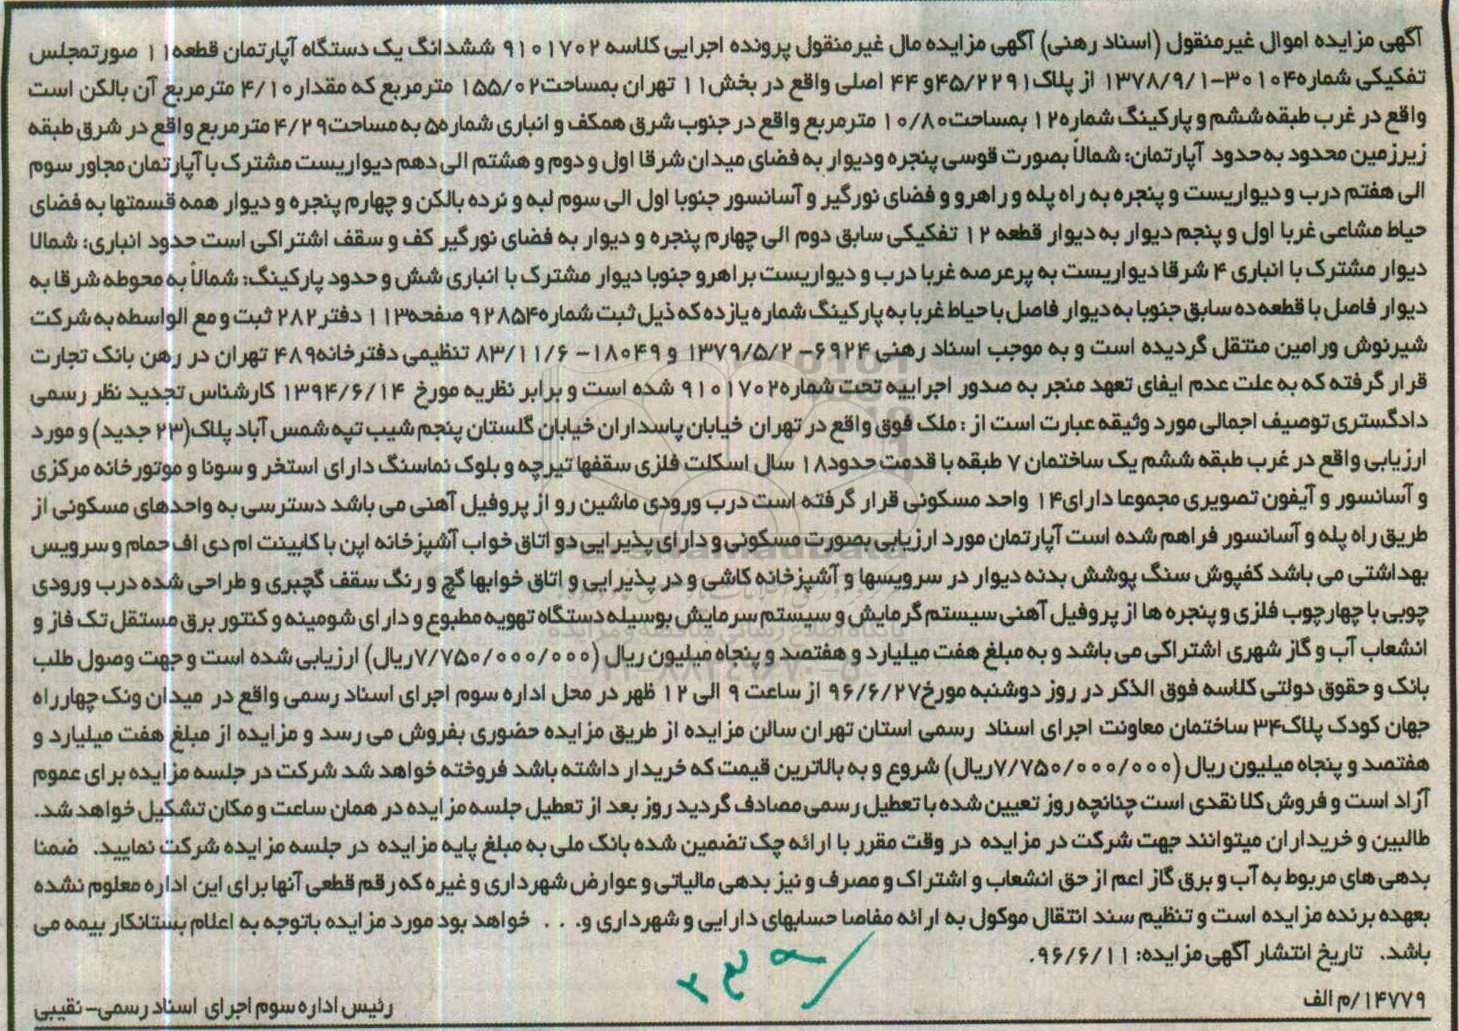 آگهی مزایده اموال غیرمنقول (اسناد رهنی) آگهی مزایده مال غیرمنقول پرونده اجرایی کلاسه ۹۱۰۱۷۰۲ ششدانگ یک دستگاه آپارتمان قطعه۱۱ صورتمجلس
تفکیکی شماره۳۰۱۰۴-۱۳۷۸/۹/۱ از پلاک۴۵/۲۲۹۱و ۴۴ اصلی واقع در بخش۱۱ تهران بمساحت۱۵۵/۰۲ مترمربع که مقدار۴/۱۰ مترمربع آن بالکن است
واقع در غرب طبقه ششم و پارکینگ شماره۱۲ بمساحت۱۰/۸۰ مترمربع واقع در جنوب شرق همکف و انباری شماره۵ به مساحت۴/۲۹ مترمربع واقع در شرق طبقه
زیرزمین محدود به حدود آپارتمان: شمالاً بصورت قوسی پنجره ودیوار به فضای میدان شرقا اول و دوم و هشتم الی دهم دیواریست مشترک با آپارتمان مجاور سوم
الی هفتم درب و دیواریست و پنجره به راه پله و راهرو و فضای نورگیر و آسانسور جنوبا اول الی سوم لبه و نرده بالکن و چهارم پنجره و دیوار همه قسمتها به فضای
حیاط مشاعی غربا اول و پنجم دیوار به دیوار قطعه ۱۲ تفکیکی سابق دوم الی چهارم پنجره و دیوار به فضای نورگیر کف و سقف اشتراکی است حدود انباری: شمالا
دیوار مشترک با انباری ۴ شرقا دیواریست به پرعرصه غربا درب و دیواریست براهرو جنوبا دیوار مشترک با انباری شش و حدود پارکینگ: شمالاً به محوطه شرقا به
دیوار فاصل با قطعه ده سابق جنوبا به دیوار فاصل با حیاط غربا به پارکینگ شماره یازده که ذیل ثبت شماره۹۲۸۵۴ صفحه۱۱۳ دفتر۲۸۲ ثبت و مع الواسطه به شرکت
شیرنوش ورامین منتقل گردیده است و به موجب اسناد رهنی ۶۹۲۴-۱۳۷۹/۵/۲ و ۱۸۰۴۹-۸۳/۱۱/۶ تنظیمی دفترخانه۴۸۹ تهران در رهن بانک تجارت
قرار گرفته که به علت عدم ایفای تعهد منجر به صدور اجراییه تحت شماره۹۱۰۱۷۰۲ شده است و برابر نظریه مورخ ۱۳۹۴/۶/۱۴ کارشناس تجدید نظر رسمی
دادگستری توصیف اجمالی مورد وثیقه عبارت است از : ملک فوق واقع در تهران خیابان پاسداران خیابان گلستان پنجم شیب تپه شمس آباد پلاک(۲۳ جدید) و مورد
ارزیابی واقع در غرب طبقه ششم یک ساختمان ۷ طبقه با قدمت حدود۱۸ سال اسکلت فلزی سقفها تیرچه و بلوک نماسنگ دارای استخر و سونا و موتورخانه مرکزی
و آسانسور و آیفون تصویری مجموعا دارای۱۴ واحد مسکونی قرار گرفته است درب ورودی ماشین رو از پروفیل آهنی می باشد دسترسی به واحدهای مسکونی از
طریق راه پله و آسانسور فراهم شده است آپارتمان مورد ارزیابی بصورت مسکونی و دارای پذیرایی دو اتاق خواب آشپزخانه اپن با کابینت ام دی اف حمام و سرویس
بهداشتی می باشد کفپوش سنگ پوشش بدنه دیوار در سرویسها و آشپزخانه کاشی و در پذیرایی و اتاق خوابها گچ و رنگ سقف گچبری و طراحی شده درب ورودی
چوبی با چهارچوب فلزی و پنجره ها از پروفیل آهنی سیستم گرمایش و سیستم سرمایش بوسیله دستگاه تهویه مطبوع و دارای شومینه و کنتور برق مستقل تک فاز و
انشعاب آب و گاز شهری اشتراکی می باشد و به مبلغ هفت میلیارد و هفتصد و پنجاه میلیون ریال (۷/۷۵۰/۰۰۰/۰۰۰ریال) ارزیابی شده است و جهت وصول طلب
بانک و حقوق دولتی کلاسه فوق الذکر در روز دوشنبه مورخ۹۶/۶/۲۷ از ساعت ۹ الی ۱۲ ظهر در محل اداره سوم اجرای اسناد رسمی واقع در میدان ونک چهارراه
جهان کودک پلاک۳۴ ساختمان معاونت اجرای اسناد رسمی استان تهران سالن مزایده از طریق مزایده حضوری بفروش می رسد و مزایده از مبلغ هفت میلیارد و
هفتصد و پنجاه میلیون ریال (۷/۷۵۰/۰۰۰/۰۰۰ریال) شروع و به بالاترین قیمت که خریدار داشته باشد فروخته خواهد شد شرکت در جلسه مزایده برای عموم
آزاد است و فروش کلا نقدی است چنانچه روز تعیین شده با تعطیل رسمی مصادف گردید روز بعد از تعطیل جلسه مزایده در همان ساعت و مکان تشکیل خواهد شد.
طالبین و خریداران میتوانند جهت شرکت در مزایده در وقت مقرر با ارائه چک تضمین شده بانک ملی به مبلغ پایه مزایده در جلسه مزایده شرکت نمایید. ضمنا
بدهی های مربوط به آب و برق گاز اعم از حق انشعاب و اشتراک و مصرف و نیز بدهی مالیاتی و عوارض شهرداری و غیره که رقم قطعی آنها برای این اداره معلوم نشده
بعهده برنده مزایده است و تنظیم سند انتقال موکول به ارائه مفاصا حسابهای دارایی و شهرداری و. . . خواهد بود مورد مزایده باتوجه به اعلام بستانکار بیمه می
باشد. تاریخ انتشار آگهی مزایده: ۹۶/۶/۱۱.
۱۴۷۷۹/م الف
رئیس اداره سوم اجرای اسناد رسمی- نقیبی